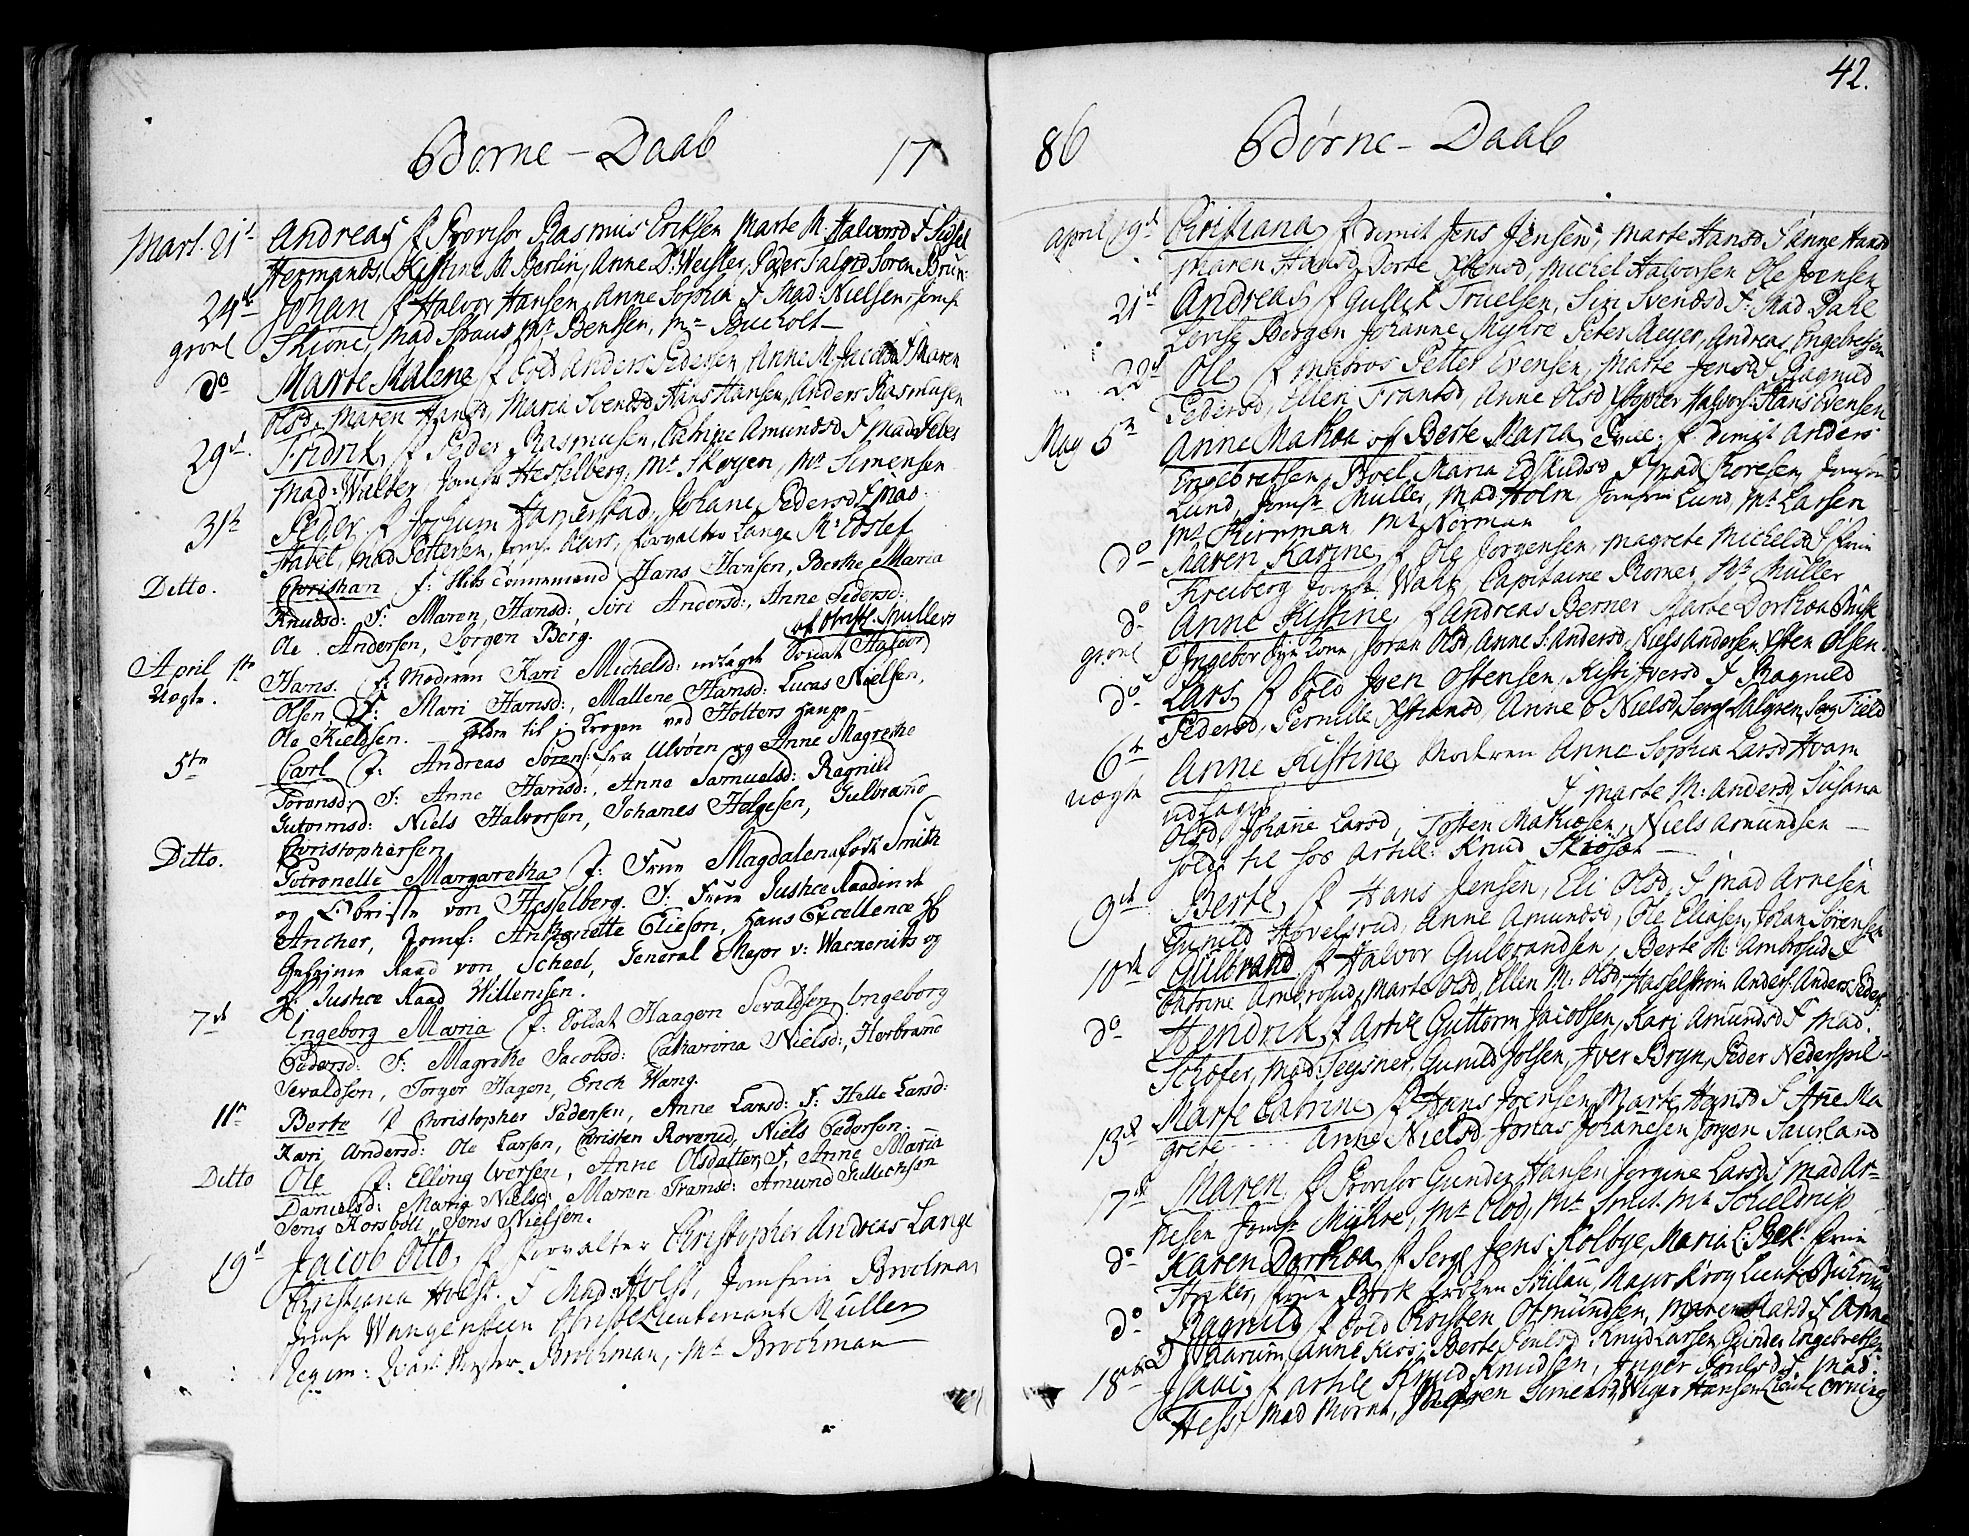 Børne-Daab 17
Mart. 21de Andreas f Provisor Rasmus Eriksen Marte M. Halvorsd F Sidsel
Hermands, Kistine M. Berlin, Anne D. Weisler, Peder Salvid Soren Brun:
24de Johan f Halvor Hansen, Anne Sophia F Mad: Nielsen, Jomf
grønl Skiøne, Mad Spaus Mr Bentsen, Mr Bucholt
do Marte Malene f Sold Anders Pedersen, Anne M. Jacobsd F Maren
Olsd, Maren Hansd, Maria Svendsd Hans Hansen, Anders Rasmusen
29de Fridrik f Peder Rasmusen, Catrine Amundsd F Mad Feber
Mad: Walber, Jomfr Hesselberg, Mr Skøyen, Mr Simensen
31te Peder f Jochum Hamerstad, Johane Pedersd F Mad
Stabel, Mad Pettersen, Jomf. Forvalter Lange Hr Edslef
Ditto. Christian f: Hans Hansen, Berthe Maria
Knudsd: F: Maren Hansd: Siri Andersd:, Anne Pedersd:
Ole Andersen, Jørgen Berg. af Obristl. Mullers
April 1ste Hans. f: Moderen Kari Michelsd: udlagde Soldat Halvor
Uægte. Olsen F: Mari Hansd:, Mallene Hansd: Lucas Nielsen,
Ole Kieldsen. holdn til i Krogen ved Holters Hauge
5te Carl f: Andreas Sørens: fra Ulvøen og Anne Magrethe
Torensd: F: Anne Hansd:, Anne Samuelsd: Ragnild
Gutormsd: Niels Halvorsen, Johannes Helgesen, Gulbrand
Christophersen
Ditto. Petronelle Margaretha f: Frue Magdalena født Smith
og Obriste von Hesselberg. F: Frue Justice Raadinde
Ancher, Jomf: Anthonette Eliesen, Hans Excellence H
Geheime Raad von Scheel, General Major v: Wackenitz og
H: Justice Raad Willemsen.
7de Ingeborg Maria f: Soldat Haagen Sevaldsen, Ingeborg
Pedersd: F: Magrethe Jacobsd: Catharina Nielsd:, Herbrand
Sevaldsen, Torger Hagen, Erich Wang.
11te Berte f Christopher Pedersen, Anne Larsd: F: Helle Larsd:
Kari Andersd: Ole Larsen, Christen Rovened, Niels Pedersen.
Ditto Ole f: Elling Iversen, Anne Olsdatter, F: Anne Maria
Danielsd: Maria Nielsd: Maren Fransd: Amund Gullichsen
Jens Korsbøll, Jens Nielsen.
19de Jacob Otto, f Forvalter Christopher Andreas Lange
Christiana Holst. F Mad: Holst, Jomfrue Brochman
Jomfr Wangensteen Obristelieutenant Müller
Regim: Qvart. Mester Brochman, Mr Brochman
42.
86 Børne-Daab
April 19de Cristiana f dimit Jens Jensen, Marte Hansd F Anne Hansd
Maren Hansd, Dorte Ystensd, Michel Halvorsen Ole Joensen
21de Andreas f Gullik Truelsen, Siri Svendsd F: Mad Dahl
Lovise Bergen Johanne Myhre Peter Meyer, Andreas Engebretsen
22de Ole f Matros Petter Evensen, Marte Jensd F Ragnild
Pedersd, Ellen Frantsd, Anne Olsd Hans Evensen
May 5te Anne Mathea og Berte Maria Tvill: f dimit Anders
Engebretsen, Boel Maria Eskildsd F Mad Thoresen, Jomfru
Lund, Jomfr Müller, Mad: Holm Jomfrue Lund, Mr Larsen
Mr Norman
do Maren Karine f Ole Jørgensen, Magrete Michelsd F Frue
Kreiberg Jomfr: Wahl Capitaine Romer, Mr Müller
do Anne Kistine, f Andreas Berner Marte Dorthea
grønl F Ingebor Joran Olsd, Anne J. Andersd, Niels Andersen, Ysten Olsen
do Lars, f Sold Iven Ostensen, Kisti Iversd F Ragnild
Pedersd, Pernille Anne O Nielsd, Serg Malgren, Serg Field
6te Anne Kistine, Moderen Anne Sophia Larsd Hvam
uægte udlagt F Marte M: Andersd, Susana
Olsd, Johane Larsd, Tosten Mathiesen, Niels Amundsen
Sold: til Søe Artill: Knud
9de Berte, f Hans Jensen, Eli Olsd, F Mad Arnesen
Gunild Hovelsrud, Anne Amundsd, Ole Eliasen, Johan Sørensen
10de Gulbrand f Halvor Gulbrandsen, Berte M: Ambrosiusd F
Catrine Marte Olsd, Ellen M: Olsd, Hasselstrøm Anders Anders Peders
do Hendrik f Artill Guttorm Jacobsen, Kari Amundsd F Mad.
Schøfer, Mad: Seysner, Gunild Jolsen, Iver Bryn, Peder Nederspil
13de Marte Catrine f Hans Joensen, Marte Hansd F Ane Ma
grete Anne Nielsd Jonas Johanesen Jorgen Saurland
17de Maren f Provisor Gunder Hansen, Jorgine Larsd F Mad Ar-
nesen Jomfr Myhre, Mr Clod, Mr Smit. Mr Schieldrup
do Karen Dorthea, f Serg Jens Kolbye, Maria C: Bek Frue
Stricker, Frue Bork Frøken Skilau, Major Krog Lieut Bühring
do Ragnild, f Sold Cristen Osmundsen, Maren F Anne
D Aarum, Anne Kirs, Berte Poulsd Knud Larsen, Gunder Engebretsen
18de Isaac f Artill Knud Knudsen, Inger Poulsd F Mad
Hess, Mad Morne, Maren Simensd, Wiger Hansen Lieut Orning